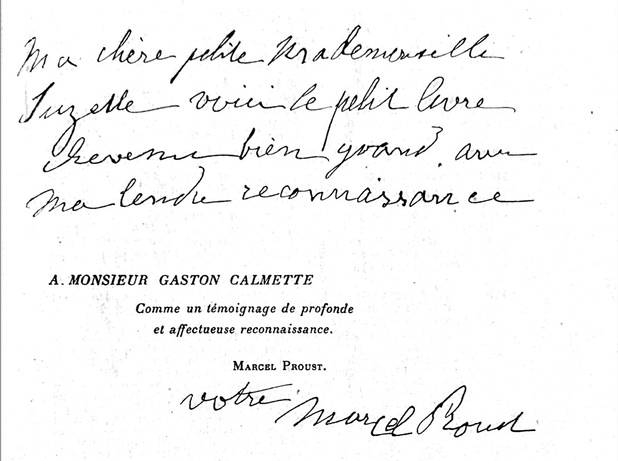 Ma chère petite Mademoiselle
Suzette voici le petit livre
devenu bien grand, avec
ma tendre reconnaissance
A. MONSIEUR GASTON CALMETTE
Comme un témoignage de profonde
et affectueuse reconnaissance.
MARCEL PROUST.
votre
Marcel Proust